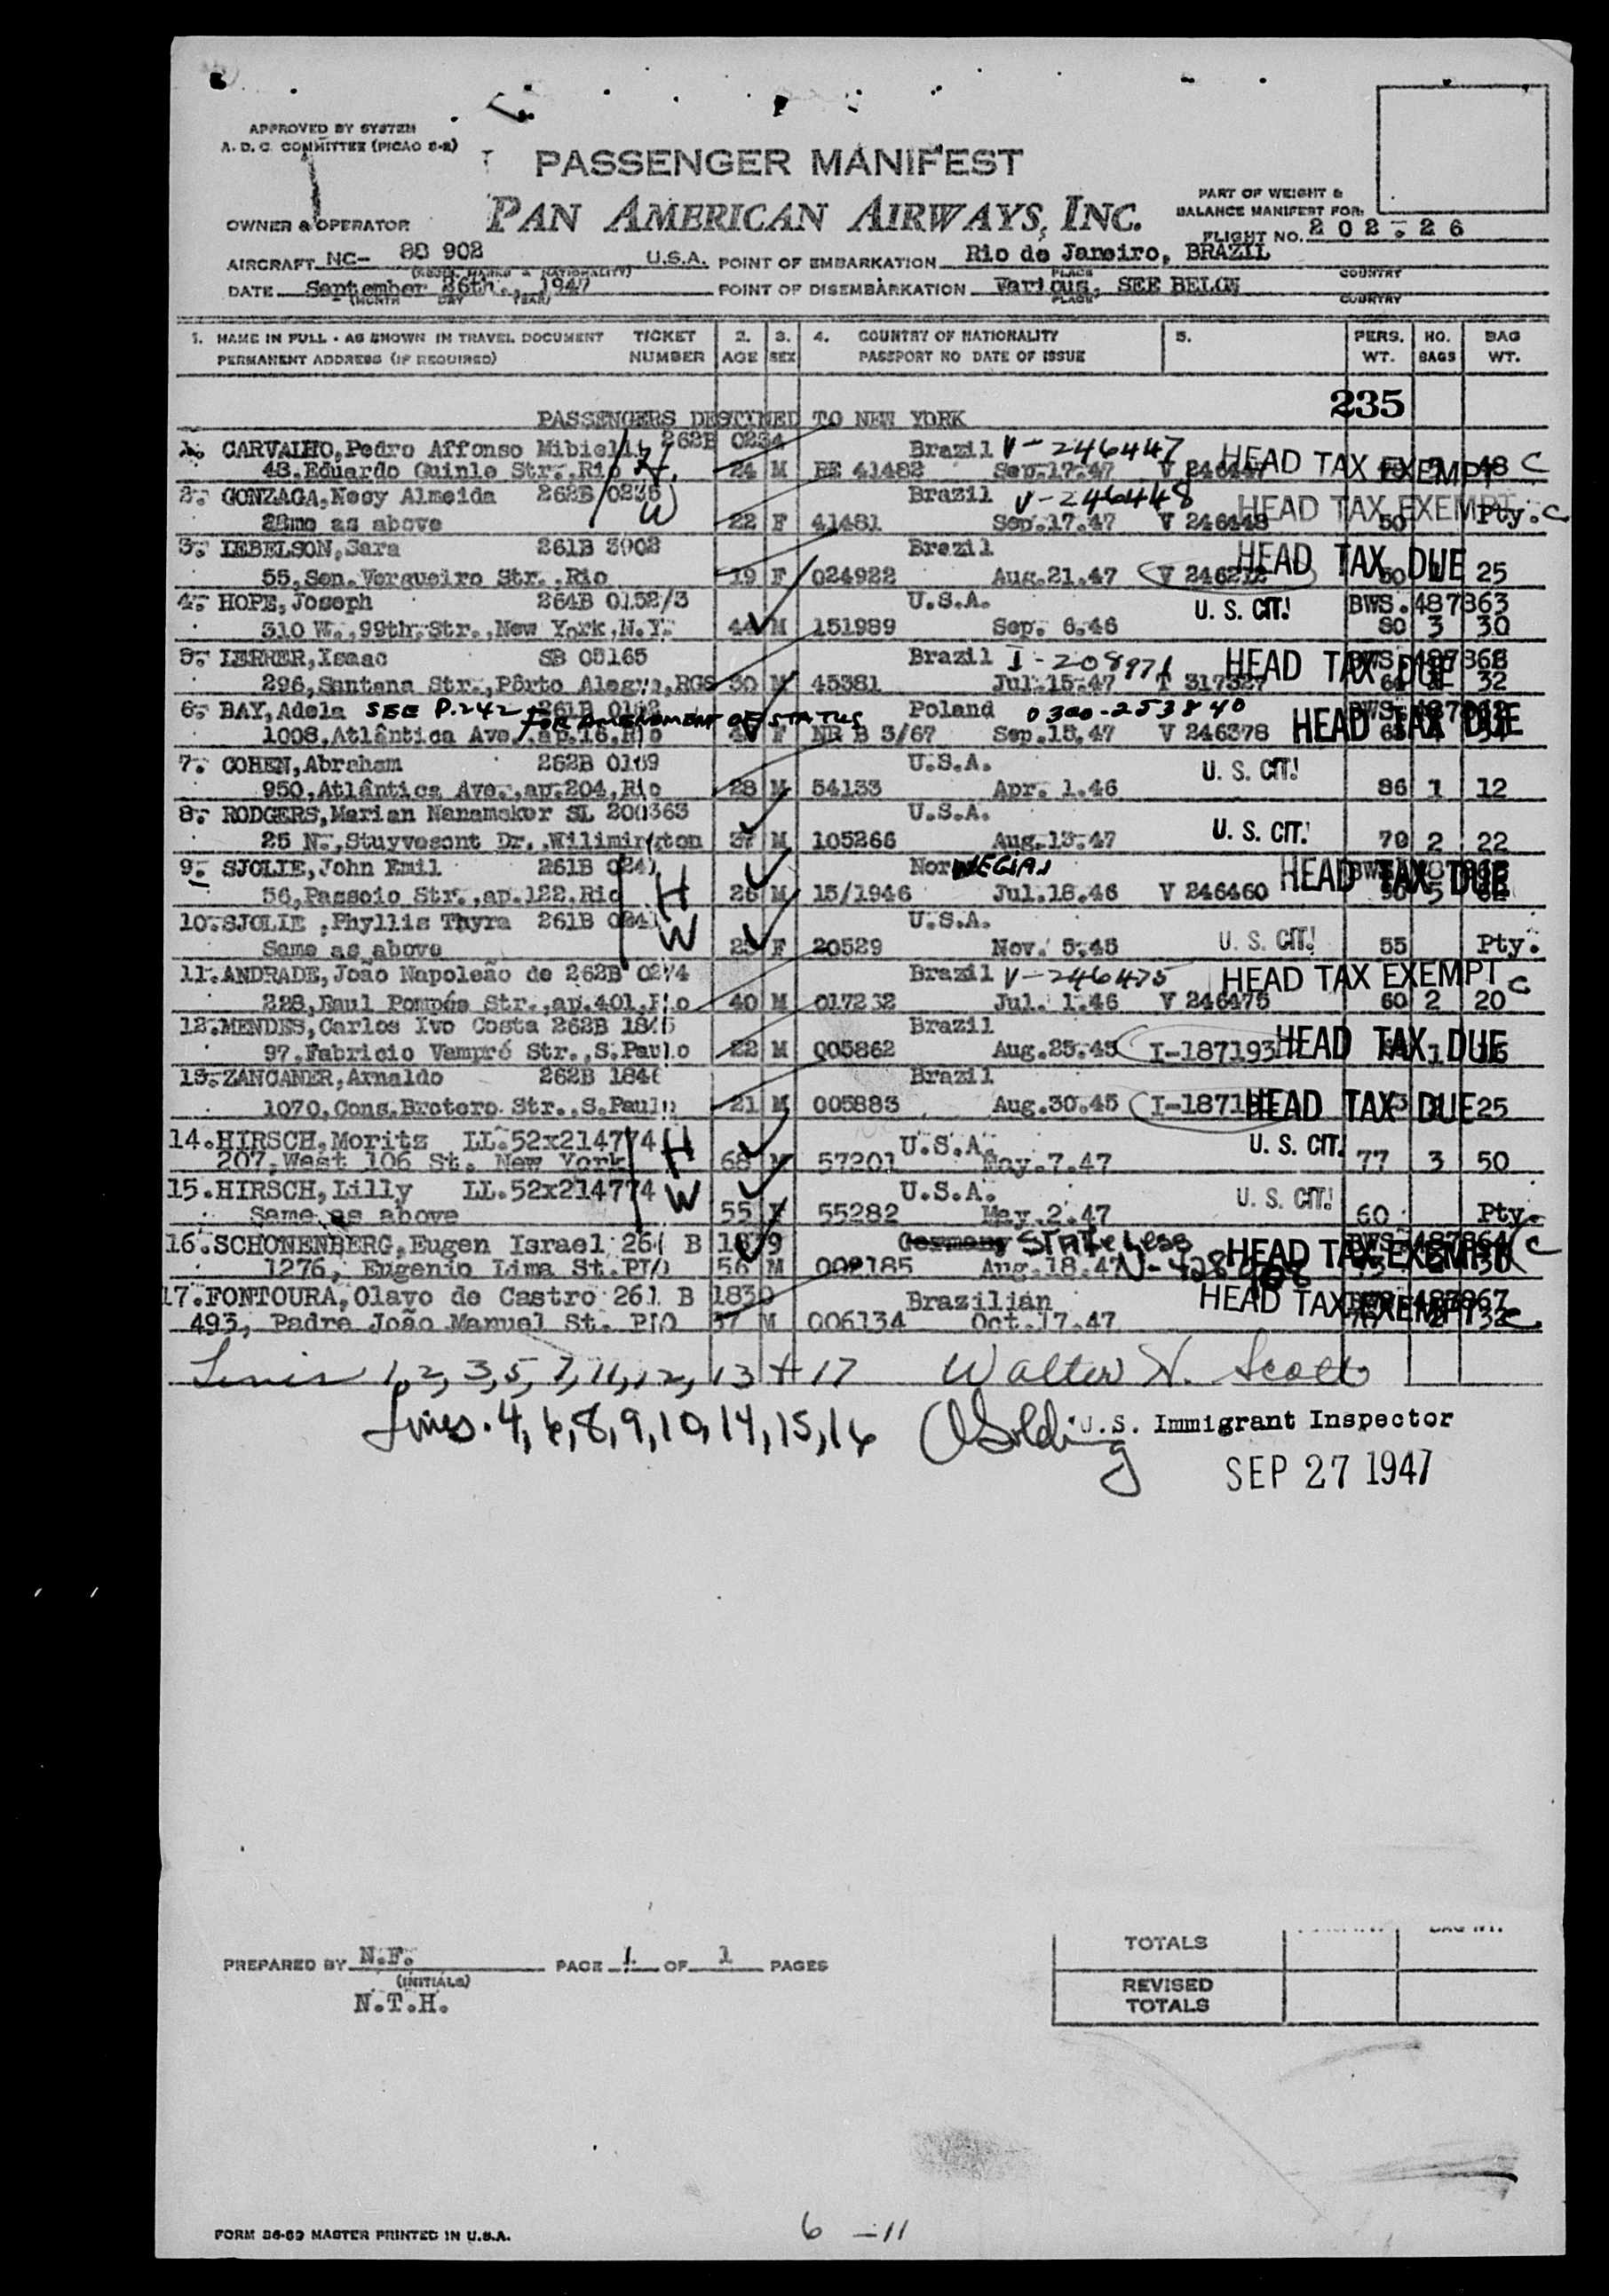 APPROVED BY SYSTEM
A. D. C. COMMITTEE (PICAO S-2)
PASSENGER MANIFEST
PAN AMERICAN AIRWAYS, INC.
PART OF WEIGHT &
BALANCE MANIFEST FOR:
FLIGHT NO. 202-26
OWNER & OPERATOR
AIRCRAFT NC- 88 902 U.S.A. POINT OF EMBARKATION Rio de Janeiro, BRAZIL
PLACE COUNTRY
DATE September 26th., 1947 POINT OF DISEMBARKATION Various, SEE BELOW
(MONTH DAY YEAR) PLACE COUNTRY
1. NAME IN FULL - AS SHOWN IN TRAVEL DOCUMENT TICKET 2. 3. 4. COUNTRY OF NATIONALITY 5. PERS. NO. BAG
PERMANENT ADDRESS (IF REQUIRED) NUMBER AGE SEX PASSPORT NO DATE OF ISSUE WT. BAGS WT.
235
PASSENGERS DESTINED TO NEW YORK
1. CARVALHO, Pedro Affonso Mibielli 262B 0234 Brazil V-246447 HEAD TAX EXEMPT
48.Eduardo Guinle Str.,Rio H. 24 M RE 41482 Sep.17.47 V 246447 48 C
2. GONZAGA,Necy Almeida 262B 0235 W Brazil V-246448 HEAD TAX EXEMPT
Same as above 22 F 41481 Sep.17.47 V 246448 50 Pty. C
3. LEBELSON,Sara 261B 3902 Brazil HEAD TAX DUE
55,Sen.Vergueiro Str.,Rio 19 F 024922 Aug.21.47 V 246272 50 1 25
4. HOPE,Joseph 264B 0152/3 U.S.A. U. S. CIT! BWS.487863
310 W.,99th.Str.,New York,N.Y. 44 M 151989 Sep. 6.46 80 3 30
5. LERRER,Isaac SB 05165 Brazil I-208971 HEAD TAX DUE
296,Santana Str.,Pôrto Alegre,RGS 30 M 45381 Jul.15.47 T 317327 32
6. BAY,Adela SEE P.242 FOR AMENDMENT OF STATUS Poland 0300-253840 HEAD TAX DUE
1008,Atlântica Ave.,ap.16,Rio F NR B 3/67 Sep.15.47 V 246378
7. COHEN,Abraham 262B 0169 U.S.A. U. S. CIT!
950,Atlântica Ave.,ap.204,Rio 28 M 54133 Apr. 1.46 86 1 12
8. RODGERS,Marian Nanamaker SL 200363 U.S.A. U. S. CIT!
25 N.,Stuyvesant Dr.,Wilimington 37 M 105266 Aug.13.47 70 2 22
9. SJOLIE,John Emil 261B 0241 H NorWEGIAN HEAD TAX DUE
56,Passeio Str.,ap.122,Rio 26 M 15/1946 Jul.18.46 V 246460
10.SJOLIE ,Phyllis Thyra 261B 0241 W U.S.A. U. S. CIT!
Same as above 25 F 20529 Nov. 5.45 55 Pty.
11.ANDRADE,João Napoleão de 262B 0274 Brazil V-246475 HEAD TAX EXEMPT C
228,Raul Pompéa Str.,ap.401,Rio 40 M 017232 Jul. 1.46 V 246475 60 2 20
12.MENDES,Carlos Ivo Costa 262B 1845 Brazil HEAD TAX DUE
97,Fabricio Vampré Str.,S.Paulo 22 M 005862 Aug.25.45 I-187193
13.ZANCANER,Arnaldo 262B 1846 Brazil HEAD TAX DUE
1070,Cons.Brotero Str.,S.Paulo 21 M 005883 Aug.30.45 25
14.HIRSCH,Moritz LL.52x214774 H U.S.A. U. S. CIT!
207,West 106 St. New York 68 M 57201 May.7.47 77 3 50
15.HIRSCH,Lilly LL.52x214774 W U.S.A. U. S. CIT!
Same as above 55 F 55282 May.2.47 60 Pty.
16.SCHONENBERG,Eugen Israel 261 B 1829 Germany STATELESS HEAD TAX EXEMPT C
1276, Eugenio Lima St. 56 M 002185 Aug.18.47
17.FONTOURA,Olavo de Castro 261 B 1830 Brazilian HEAD TAX EXEMPT C
493, Padre João Manuel St. 37 M 006134 Oct.17.47 32
Lines 1,2,3,5,7,11,12,13+17 Walter H. Scott
Lines.4,6,8,9,10,14,15,16 Golding U.S. Immigrant Inspector
SEP 27 1947
TOTALS
PREPARED BY N.F. PAGE 1 OF 1 PAGES
(INITIALS)
N.T.H.
REVISED
TOTALS
6 -11
FORM 36-69 MASTER PRINTED IN U.S.A.